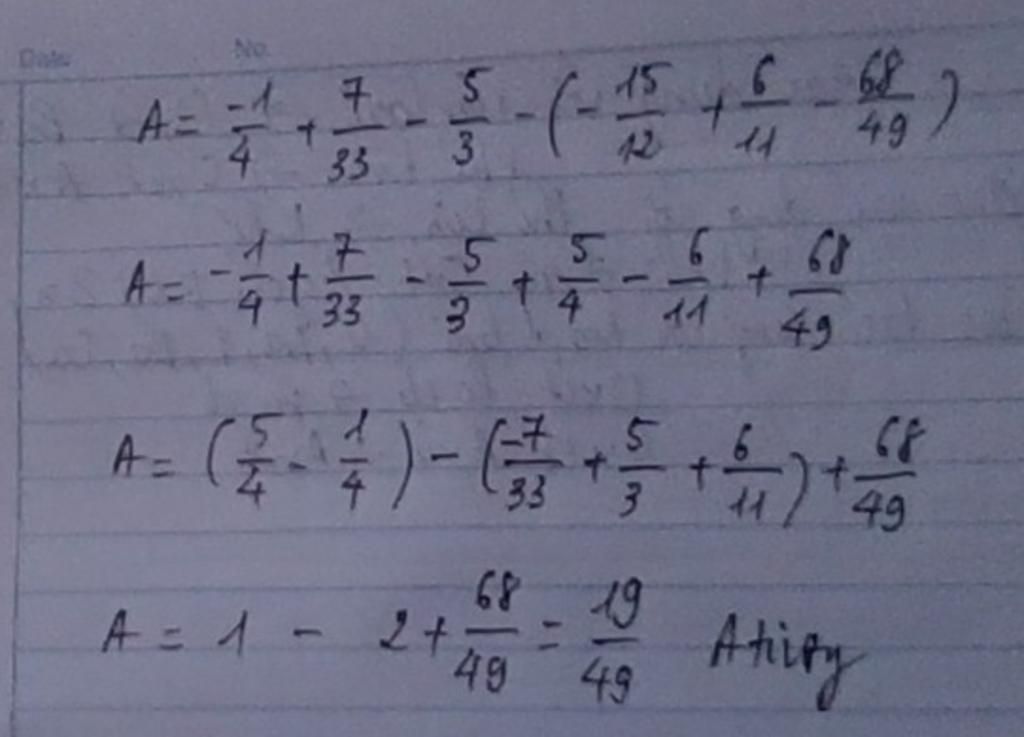 Date No.
A = -1/4 + 7/33 - 5/3 - (-15/12 + 6/11 - 68/49)
A = -1/4 + 7/33 - 5/3 + 5/4 - 6/11 + 68/49
A = (5/4 - 1/4) - (-7/33 + 5/3 + 6/11) + 68/49
A = 1 - 2 + 68/49 = 19/49